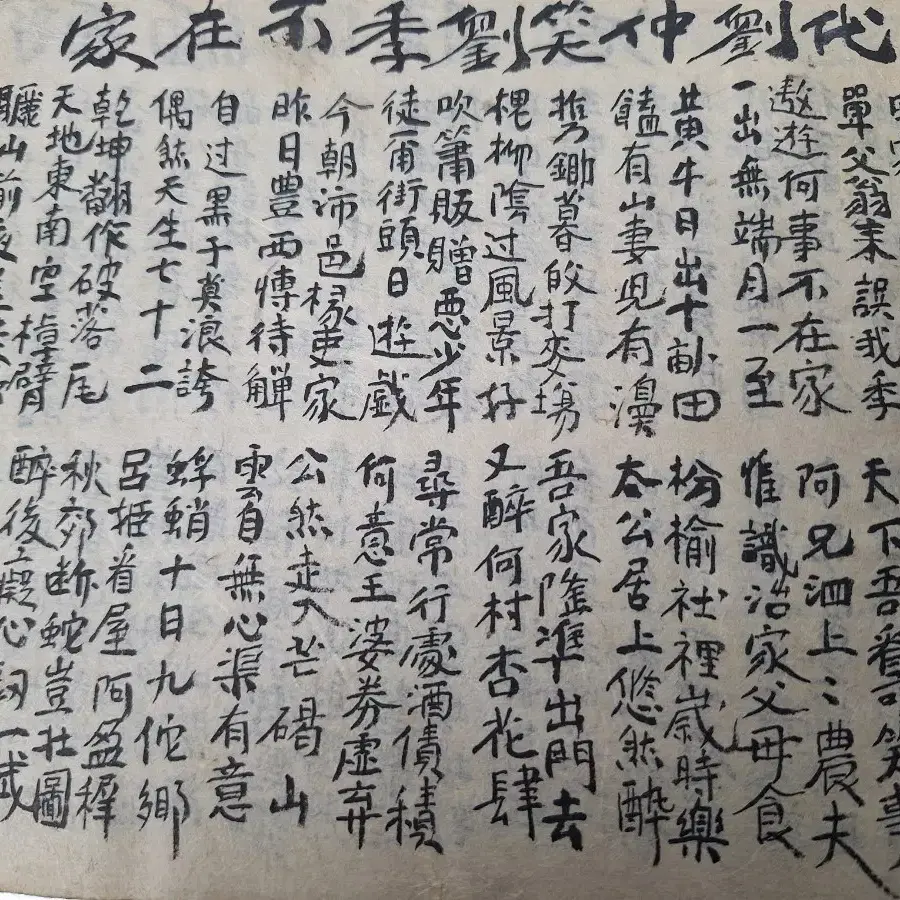 代劉仲笑劉季不在家
單父翁来誤我季
遨遊何事不在家
一出無端月一至
黃牛日出十畝田
饁有山妻児有湌
携鋤暮皈打麥場
槐柳陰过風景好
吹簫販贈惡少年
徒爾街頭日遊戲
今朝沛邑椽吏家
昨日豊西博待觶
自过黑子莫浪誇
偶然天生七十二
乾坤翻作破落尾
天地東南空掉臂
驪山前夜
天下吾看可笑事
阿兄泗上〻農夫
惟識治家父母食
枌榆社裡歲時樂
太公居上悠然醉
吾家隆準出門去
又醉何村杏花肆
尋常行處酒債積
何意王婆券虛弃
公然走入芒碭山
雲自無心渠有意
十日九佗鄉
呂姬看屋阿盈稚
秋郊断蛇豈壮圖
醉後癡心一試